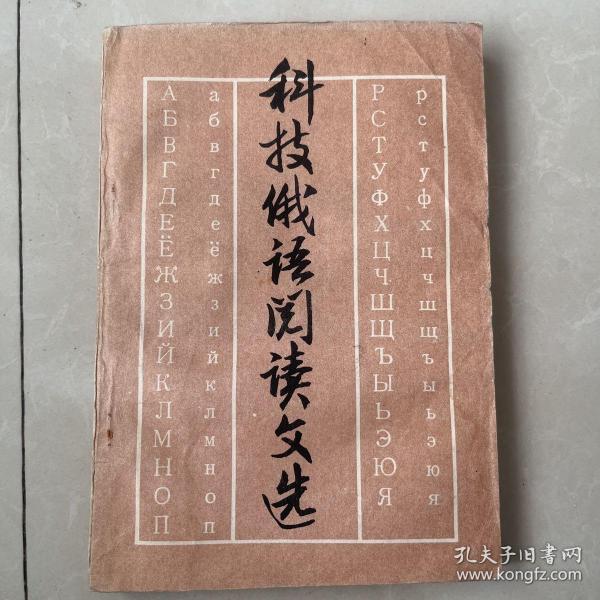 АБВГДЕЁЖЗИЙКЛМНОП
абвгдеёжзийклмноп
科技俄语阅读文选
РСТУФХЦЧШЩЪЫЬЭЮЯ
рстуфхцчшщъыьэюя
孔夫子旧书网
www.kongfz.com